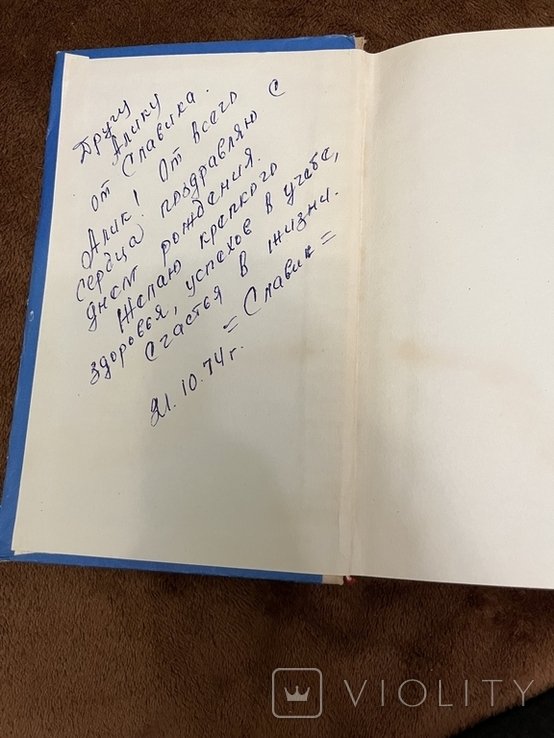 Другу
Алику
от Славика.
Алик! От всего
сердца поздравляю с
днем рождения.
Желаю крепкого
здоровья, успехов в учебе,
счастья в жизни.
= Славик =
21.10.74 г.
VIOLITY